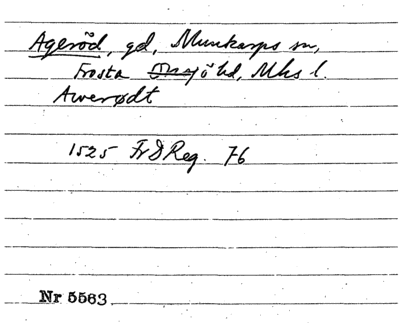 Ageröd, gd, Munkarps sn,
Frosta hd, Mhs l.
Awerødt
1525 FrIReg. 76
Nr 5563